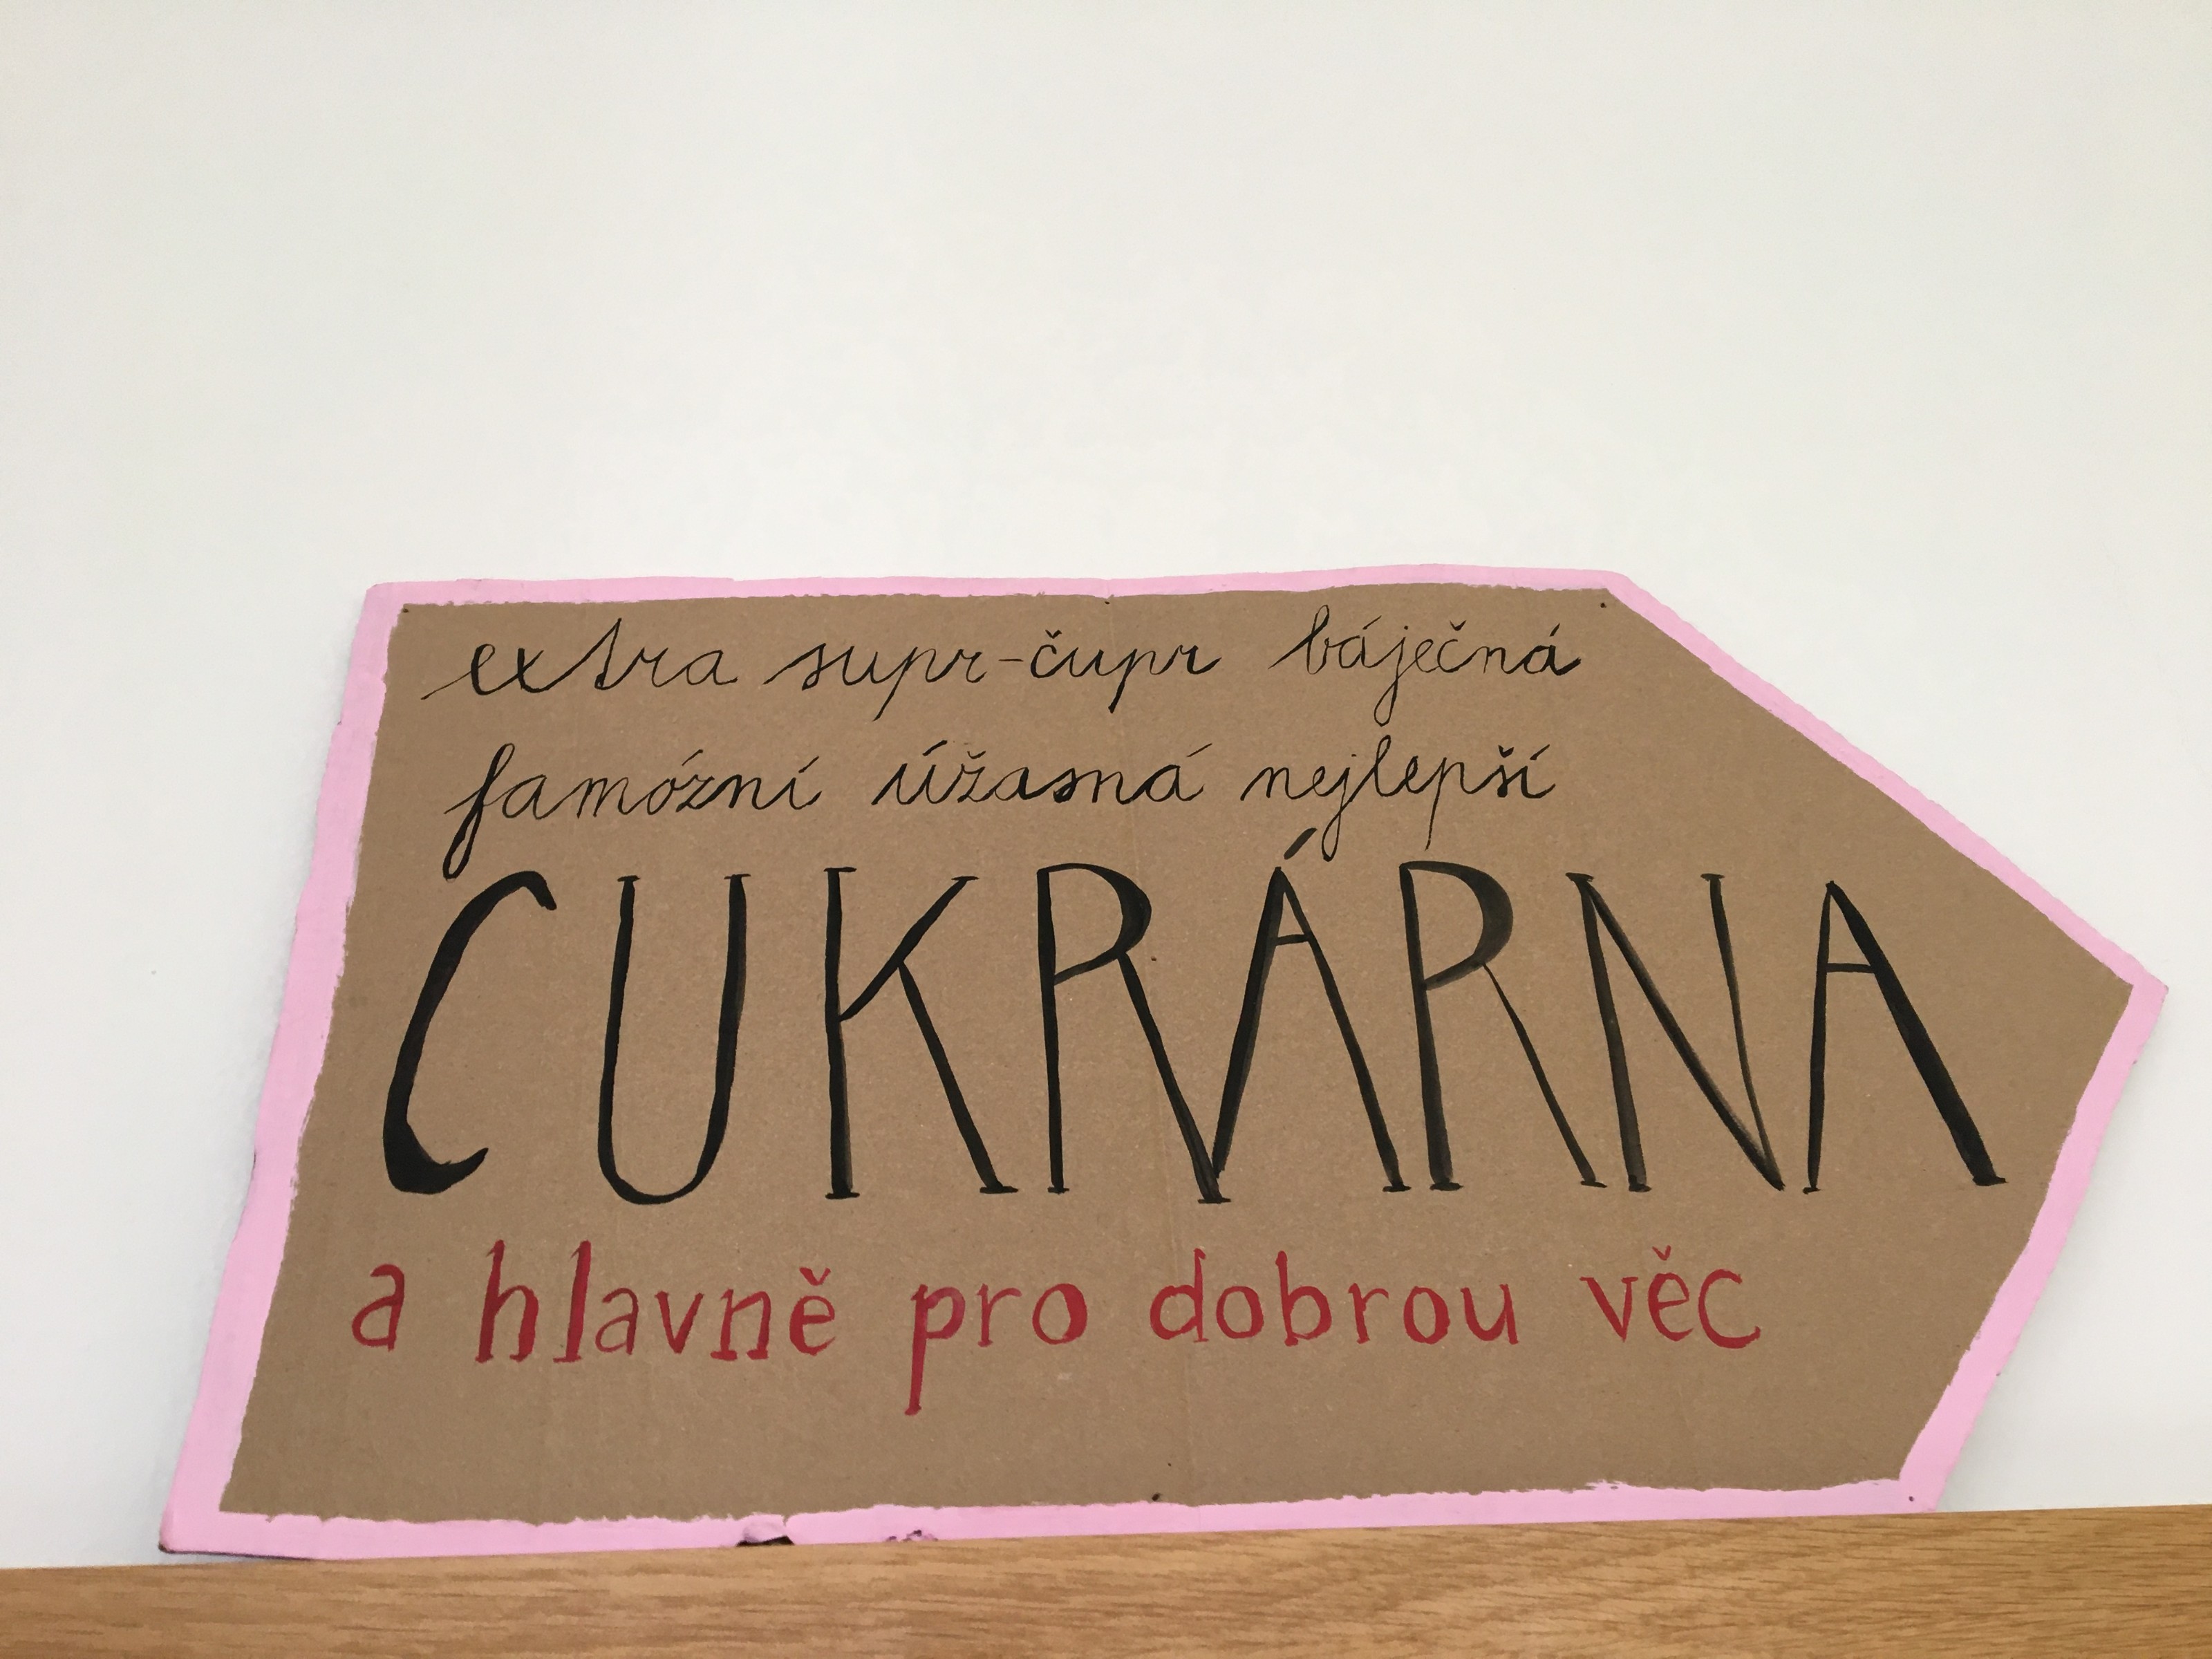 extra supr-čupr báječná
famózní úžasná nejlepší
CUKRÁRNA
a hlavně pro dobrou věc